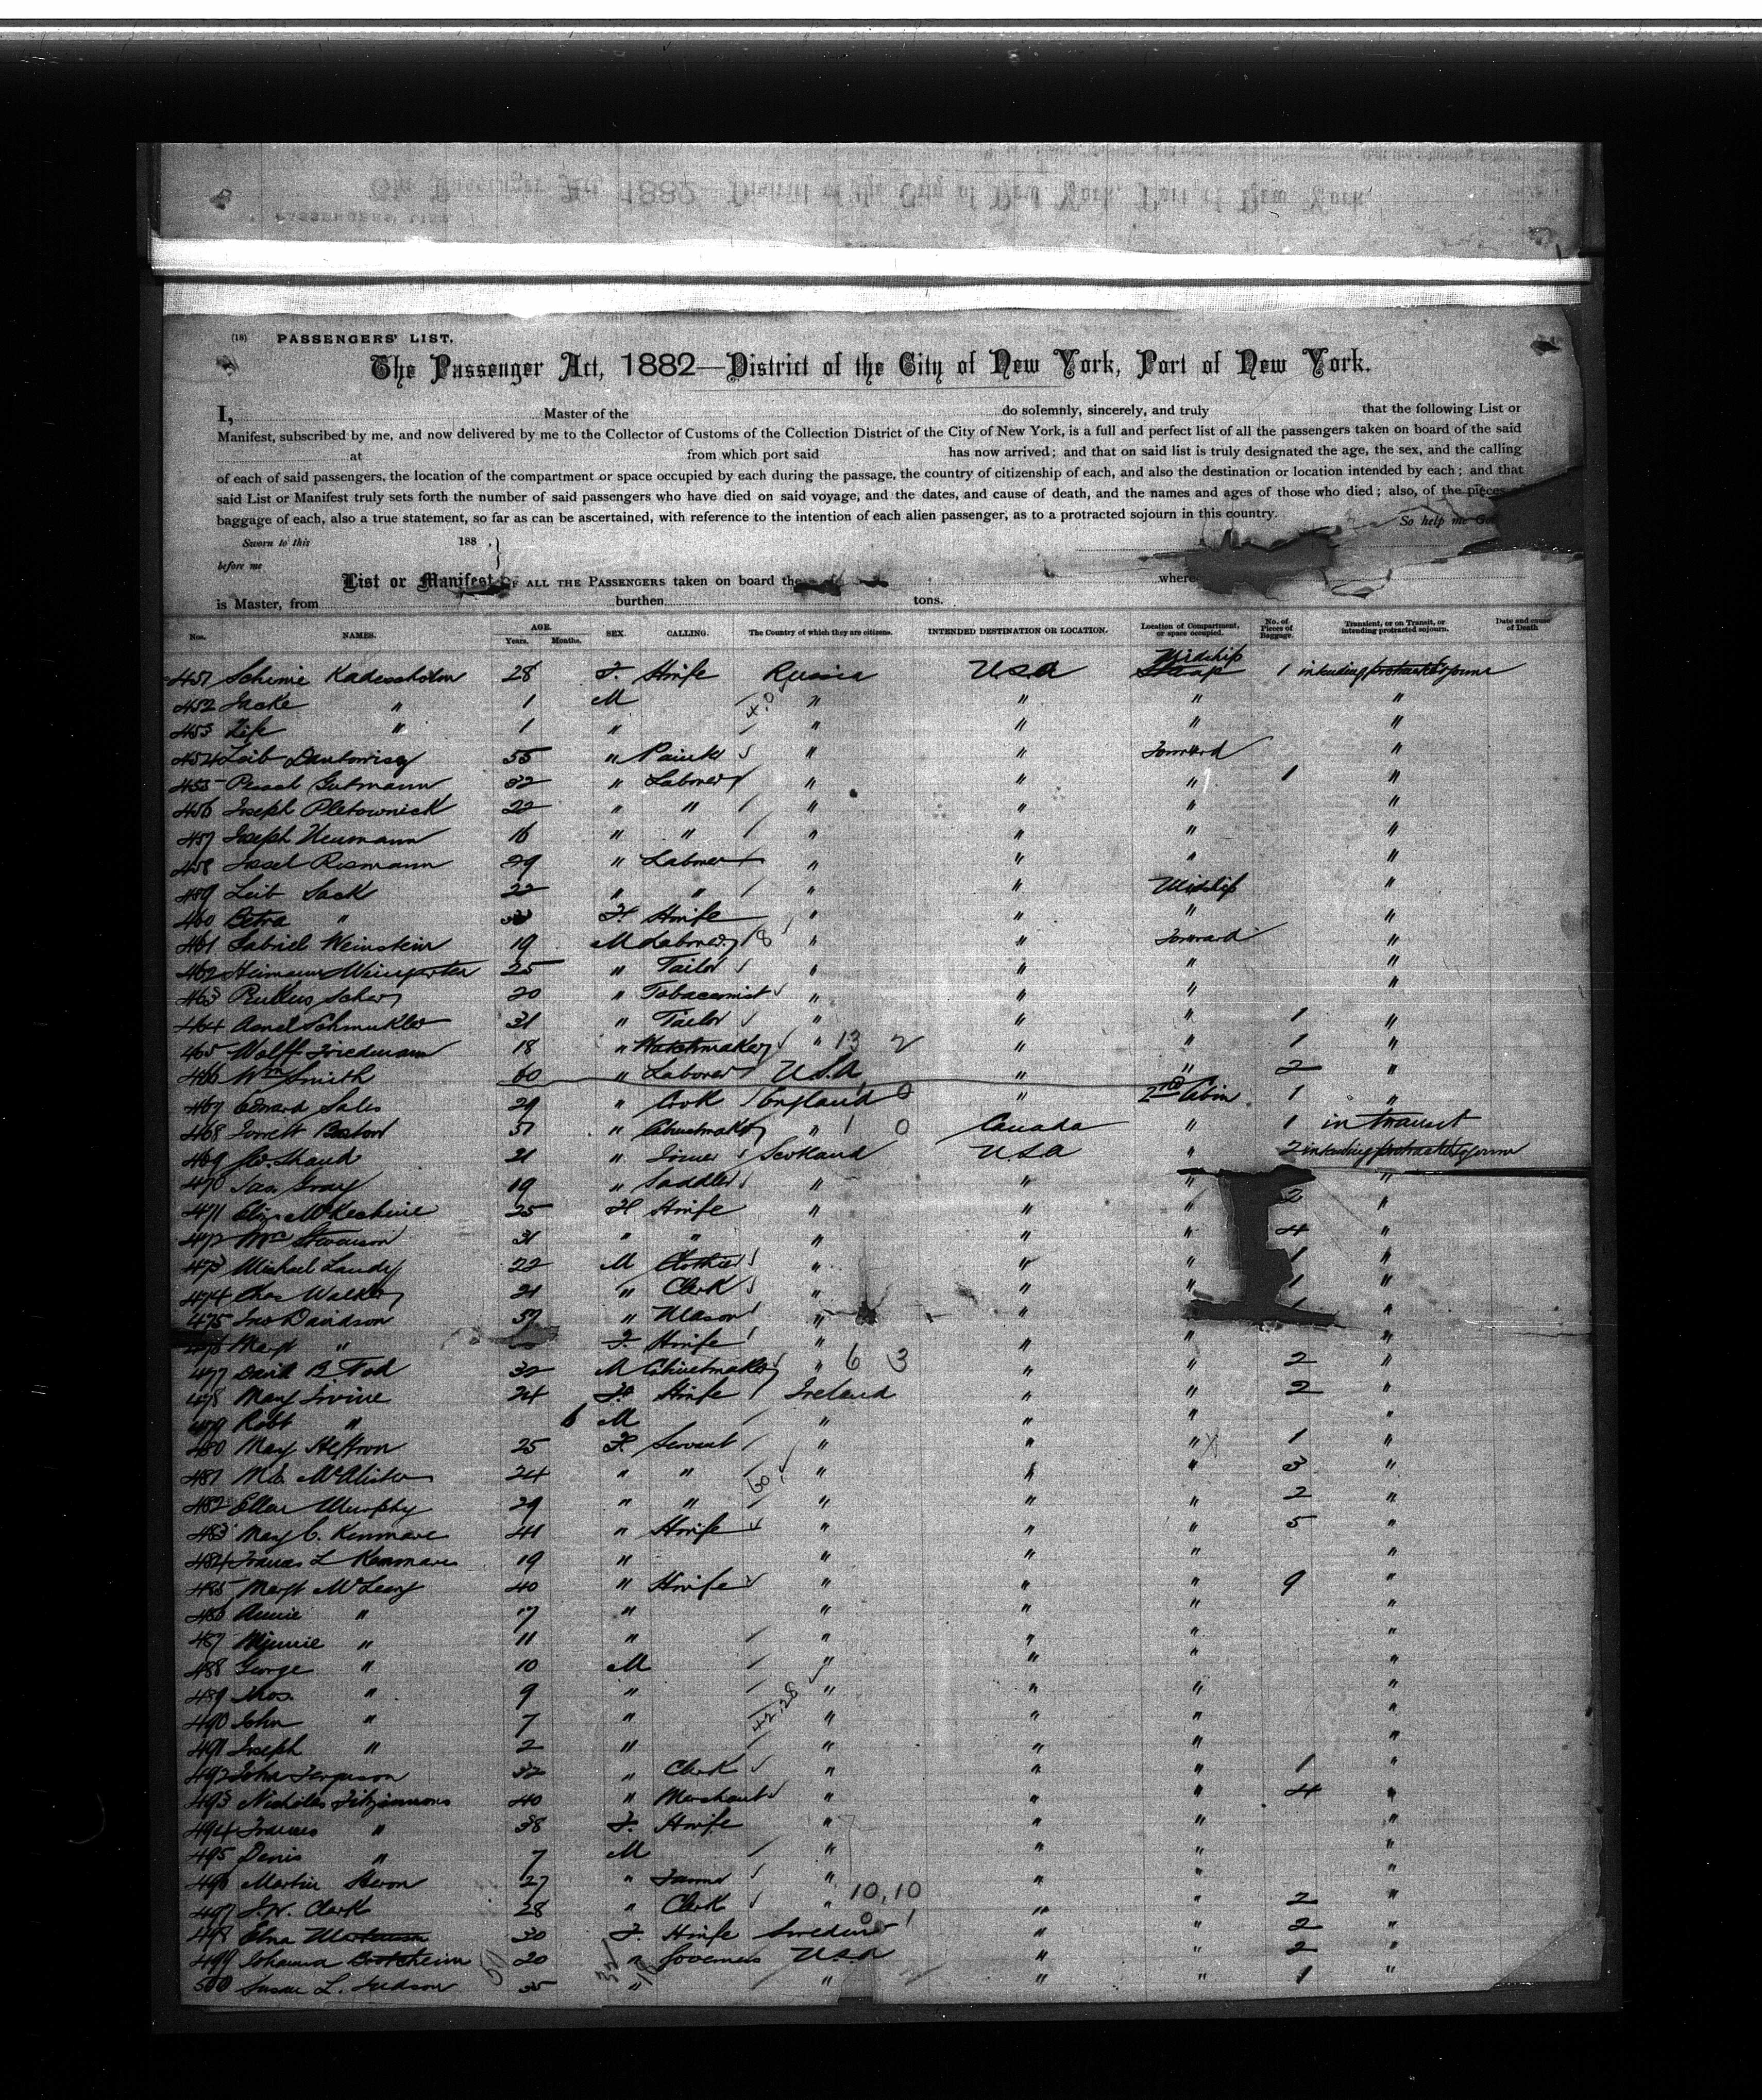 (18) PASSENGERS' LIST.
The Passenger Act, 1882—District of the City of New York, Port of New York.
I, Master of the do solemnly, sincerely, and truly that the following List or
Manifest, subscribed by me, and now delivered by me to the Collector of Customs of the Collection District of the City of New York, is a full and perfect list of all the passengers taken on board of the said
at from which port said has now arrived; and that on said list is truly designated the age, the sex, and the calling
of each of said passengers, the location of the compartment or space occupied by each during the passage, the country of citizenship of each, and also the destination or location intended by each; and that
said List or Manifest truly sets forth the number of said passengers who have died on said voyage, and the dates, and cause of death, and the names and ages of those who died; also, of the pieces of
baggage of each, also a true statement, so far as can be ascertained, with reference to the intention of each alien passenger, as to a protracted sojourn in this country. So help me
Sworn to this 188 .
before me
List or Manifest OF ALL THE PASSENGERS taken on board the where
is Master, from burthen tons.
Nos. NAMES. AGE. Years. Months. SEX. CALLING. The Country of which they are citizens. INTENDED DESTINATION OR LOCATION. Location of Compartment, or space occupied. No. of Pieces of Baggage. Transient, or on Transit, or intending protracted sojourn. Date and cause of Death
451 28 F. Hwife Russia USA Midship 1 intending protracted sojourn
452 " 1 M " " " "
453 " 1 " " " " "
454 Leib 55 " " " Forward "
455 Gutmann 32 " Laborer " " " 1 "
456 Joseph Pletownick 22 " " " " " "
457 Joseph Neumann 16 " " " " " "
458 29 " Laborer " " " "
459 Leib Sack 22 " " " " Midship "
460 " F. Hwife " " " "
461 Gabriel Weinstein 19 M Laborer " " Forward "
462 Weingarten 25 " Tailor " " " "
463 20 " Tobacconist " " " "
464 Schmukler 31 " Tailor " " " 1 "
465 Wolff Friedmann 18 " Watchmaker " 13 2 " " 1 "
466 Wm Smith 60 " Laborer U.S.A " " 2 "
467 Edward Sales 29 " Cook England 0 " 2nd Cabin 1 "
468 51 " Cabinetmaker " 1 0 Canada " 1 in transit
469 Shand 21 " Joiner Scotland USA " 2 intending protracted sojourn
470 Jas. Gray 19 " Saddler " " " "
471 Eliza McKechnie 25 F Hwife " " " 2 "
472 Mrs Stevenson 31 " " " " " 4 "
473 Michael Landy 22 M Clothier " " " 1 "
474 Chas Walker 21 " Clerk " " " 1 "
475 Jno Davidson 37 " Mason " " " 1 "
476 Margt " F. Hwife " " " "
477 David B Tod 32 M Cabinetmaker " 6 3 " " 2 "
478 Mary Irvine 24 F. Hwife Ireland " " 2 "
479 Robt " 6 M " " " "
480 Mary Heffron 25 F. Servant " " " 1 "
481 McAlister 24 " " " " " 3 "
482 Ellen Murphy 29 " " " " " 2 "
483 Mary C. Kenmare 41 " Hwife " " " 5 "
484 Frances L Kenmare 19 " " " " "
485 Margt McLeary 40 " Hwife " " " 9 "
486 Annie " 17 " " " " "
487 Minnie " 11 " " " " "
488 George " 10 M " " " "
489 Thos. " 9 " " " " "
490 John " 7 " " " " "
491 Joseph " 2 " " " " "
492 John Ferguson 32 " Clerk " " " 1 "
493 Nicholas Fitzsimmons 40 " Merchant " " " 4 "
494 Frances " 38 F. Hwife " " " "
495 Denis " 7 M " " " "
496 Martin Heron 27 " Farmer " " " "
497 J.W. Clark 28 " Clerk " 10,10 " " 2 "
498 Elna 30 F. Hwife Sweden " " 2 "
499 Johanna 20 " Governess U.S.A " " 2 "
500 Susan L. Judson 35 " " " " 1 "